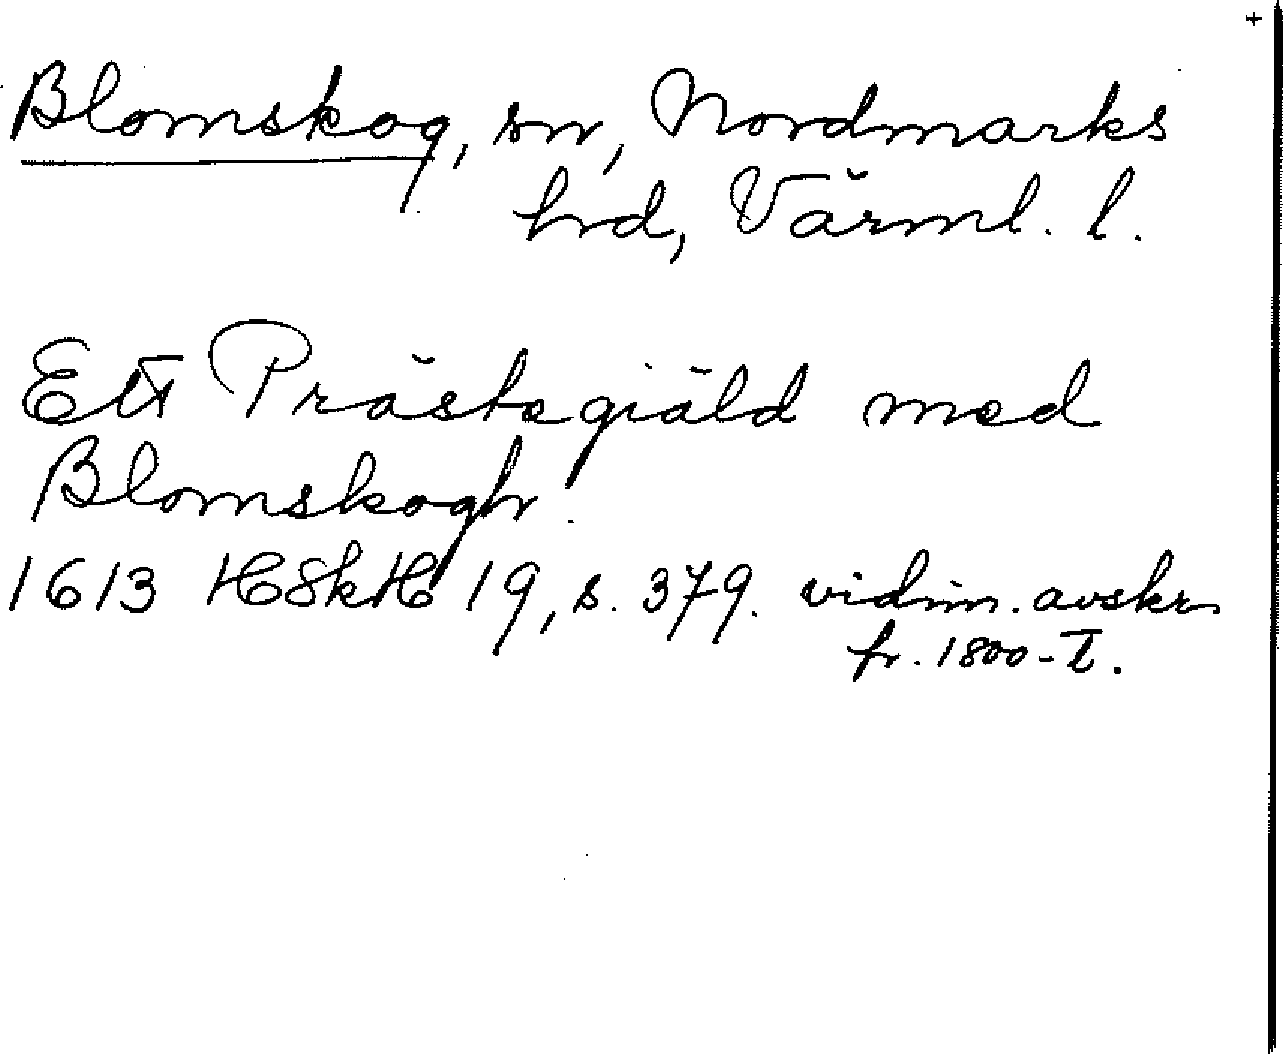 +
Blomskog, sn, Nordmarks
hd, Värml. l.
Ett Prästegiäld med
Blomskogh.
1613 HSkH 19, s. 379. vidim. avskr
fr. 1800-t.